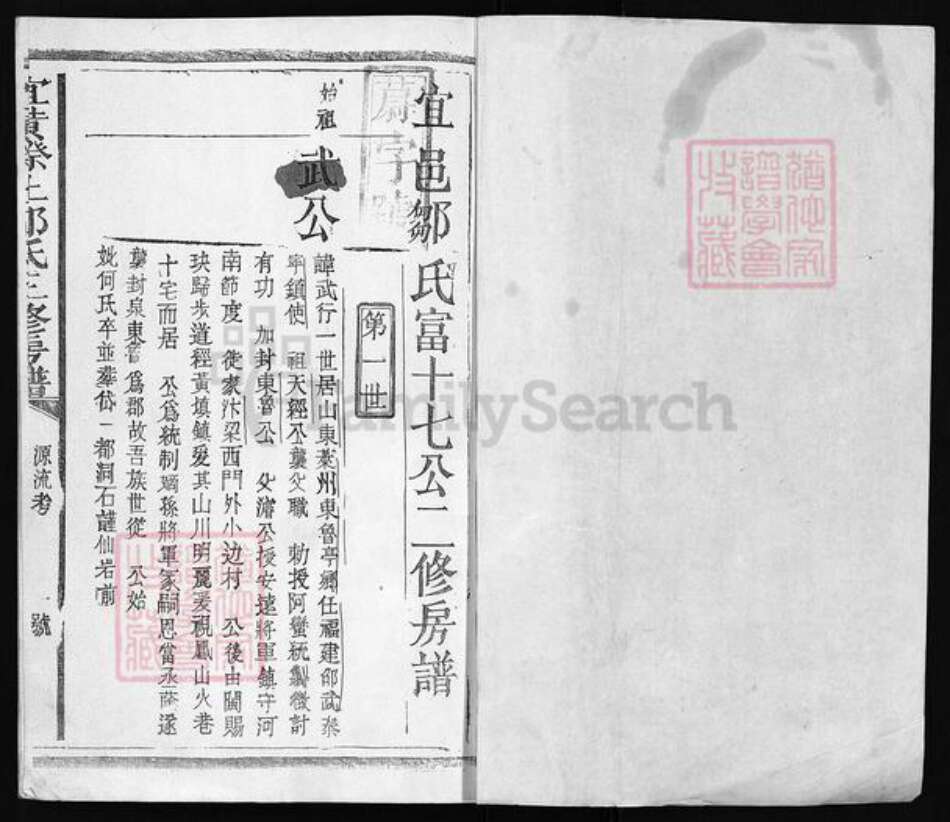 宜邑鄒氏富十七公二修房譜
第一世
始祖
武公
諱武行一世居山東萊州東魯亭鄉任福建邵武泰
寧鎮使 祖天經公襲父職 勅授阿蠻統製徵討
有功 加封東魯公 父濬公授安遠將軍鎮守河
南節度 徙家汴梁西門外小边村 公後由閩賜
玦歸步道經黃填鎮愛其山川明麗爰視鳳山火巷
十宅而居 公爲統制 孫將軍 嗣恩當丞 遂
襲封泉東魯爲郡故吾族世從 公始
妣何氏卒並塟岱一都洞石 仙岩前
宜黃 上鄒氏二修房譜
源流考
一號
FamilySearch